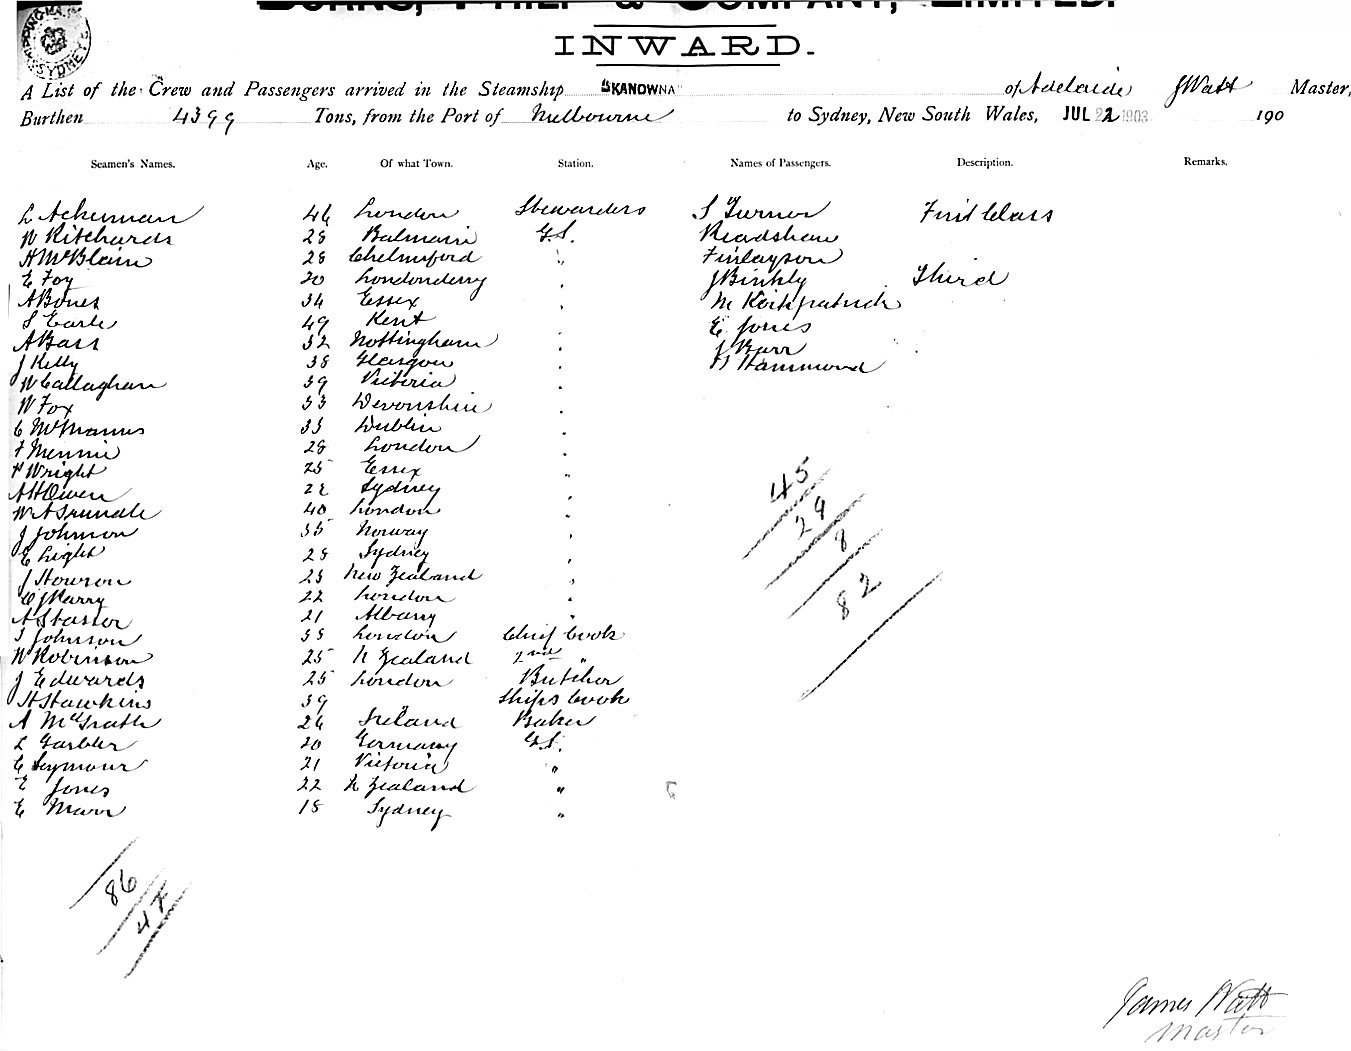 BURNS, PHILP & COMPANY, LIMITED.
INWARD.
SYDNEY
A List of the Crew and Passengers arrived in the Steamship "KANOWNA" of Adelaide J Watt Master,
Burthen 4399 Tons, from the Port of Melbourne to Sydney, New South Wales, JUL 22 1903 190
Seamen's Names. Age. Of what Town. Station. Names of Passengers. Description. Remarks.
L Ackerman 46 London Stewardess S Turner First Class
W Ritchards 28 Balmain G.S. Readshaw
A McBlain 28 Chelmsford " Finlayson
E Foy 20 Londonderry " J Binkly Third
A Bones 34 Essex " M Kirkpatrick
S Earle 49 Kent " E Jones
A Bass 32 Nottingham " J Barr
J Kelly 38 Glasgow " H Hammond
W Callaghan 39 Victoria "
W Fox 33 Devonshire "
C McManus 35 Dublin "
F Mennie 28 London "
P Wright 25 Essex "
A H Owen 22 Sydney "
W A Trundle 40 London "
J Johnson 35 Norway "
E Light 28 Sydney "
J Howson 23 New Zealand "
C J Parry 22 London "
A Stassor 21 Albany "
T Johnson 38 London Chief Cook
W Robinson 25 N Zealand 2nd "
J Edwards 25 London Butcher
H Hawkins 39 Ships Cook
A McGrath 26 Ireland Baker
L Garbler 20 Germany G.S.
C Seymour 21 Victoria "
E Jones 22 N Zealand "
E Marr 18 Sydney "
45
29
8
82
86
4
James Watt
Master